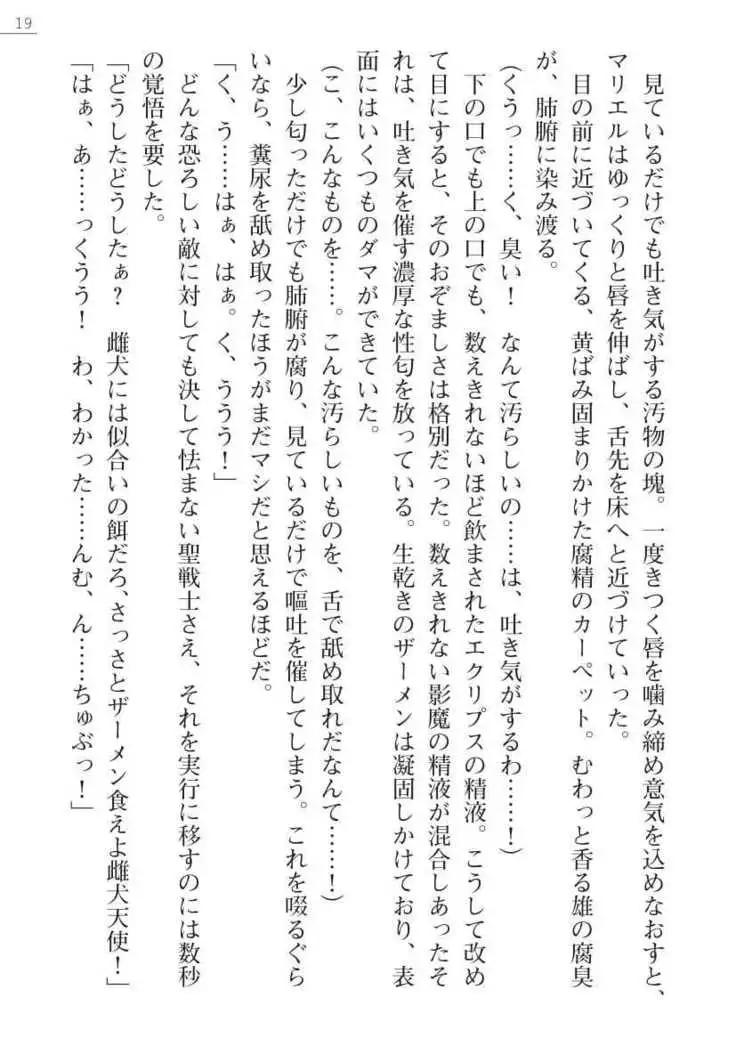 19
見ているだけでも吐き気がする汚物の塊。一度きつく唇を噛み締め意気を込めなおすと、
マリエルはゆっくりと唇を伸ばし、舌先を床へと近づけていった。
目の前に近づいてくる、黄ばみ固まりかけた腐精のカーペット。むわっと香る雄の腐臭
が、肺腑に染み渡る。
（くうっ……く、臭い！　なんて汚らしいの……は、吐き気がするわ……！）
下の口でも上の口でも、数えきれないほど飲まされたエクリプスの精液。こうして改め
て目にすると、そのおぞましさは格別だった。数えきれない影魔の精液が混合しあったそ
れは、吐き気を催す濃厚な性匂を放っている。生乾きのザーメンは凝固しかけており、表
面にはいくつものダマができていた。
（こ、こんなものを……。こんな汚らしいものを、舌で舐め取れだなんて……！）
少し匂っただけでも肺腑が腐り、見ているだけで嘔吐を催してしまう。これを啜るぐら
いなら、糞尿を舐め取ったほうがまだマシだと思えるほどだ。
「く、う……はぁ、はぁ。く、ううう！」
どんな恐ろしい敵に対しても決して怯まない聖戦士さえ、それを実行に移すのには数秒
の覚悟を要した。
「どうしたどうしたぁ？　雌犬には似合いの餌だろ、さっさとザーメン食えよ雌犬天使！」
「はぁ、あ……っくうう！　わ、わかった……んむ、ん……ちゅぶっ！」